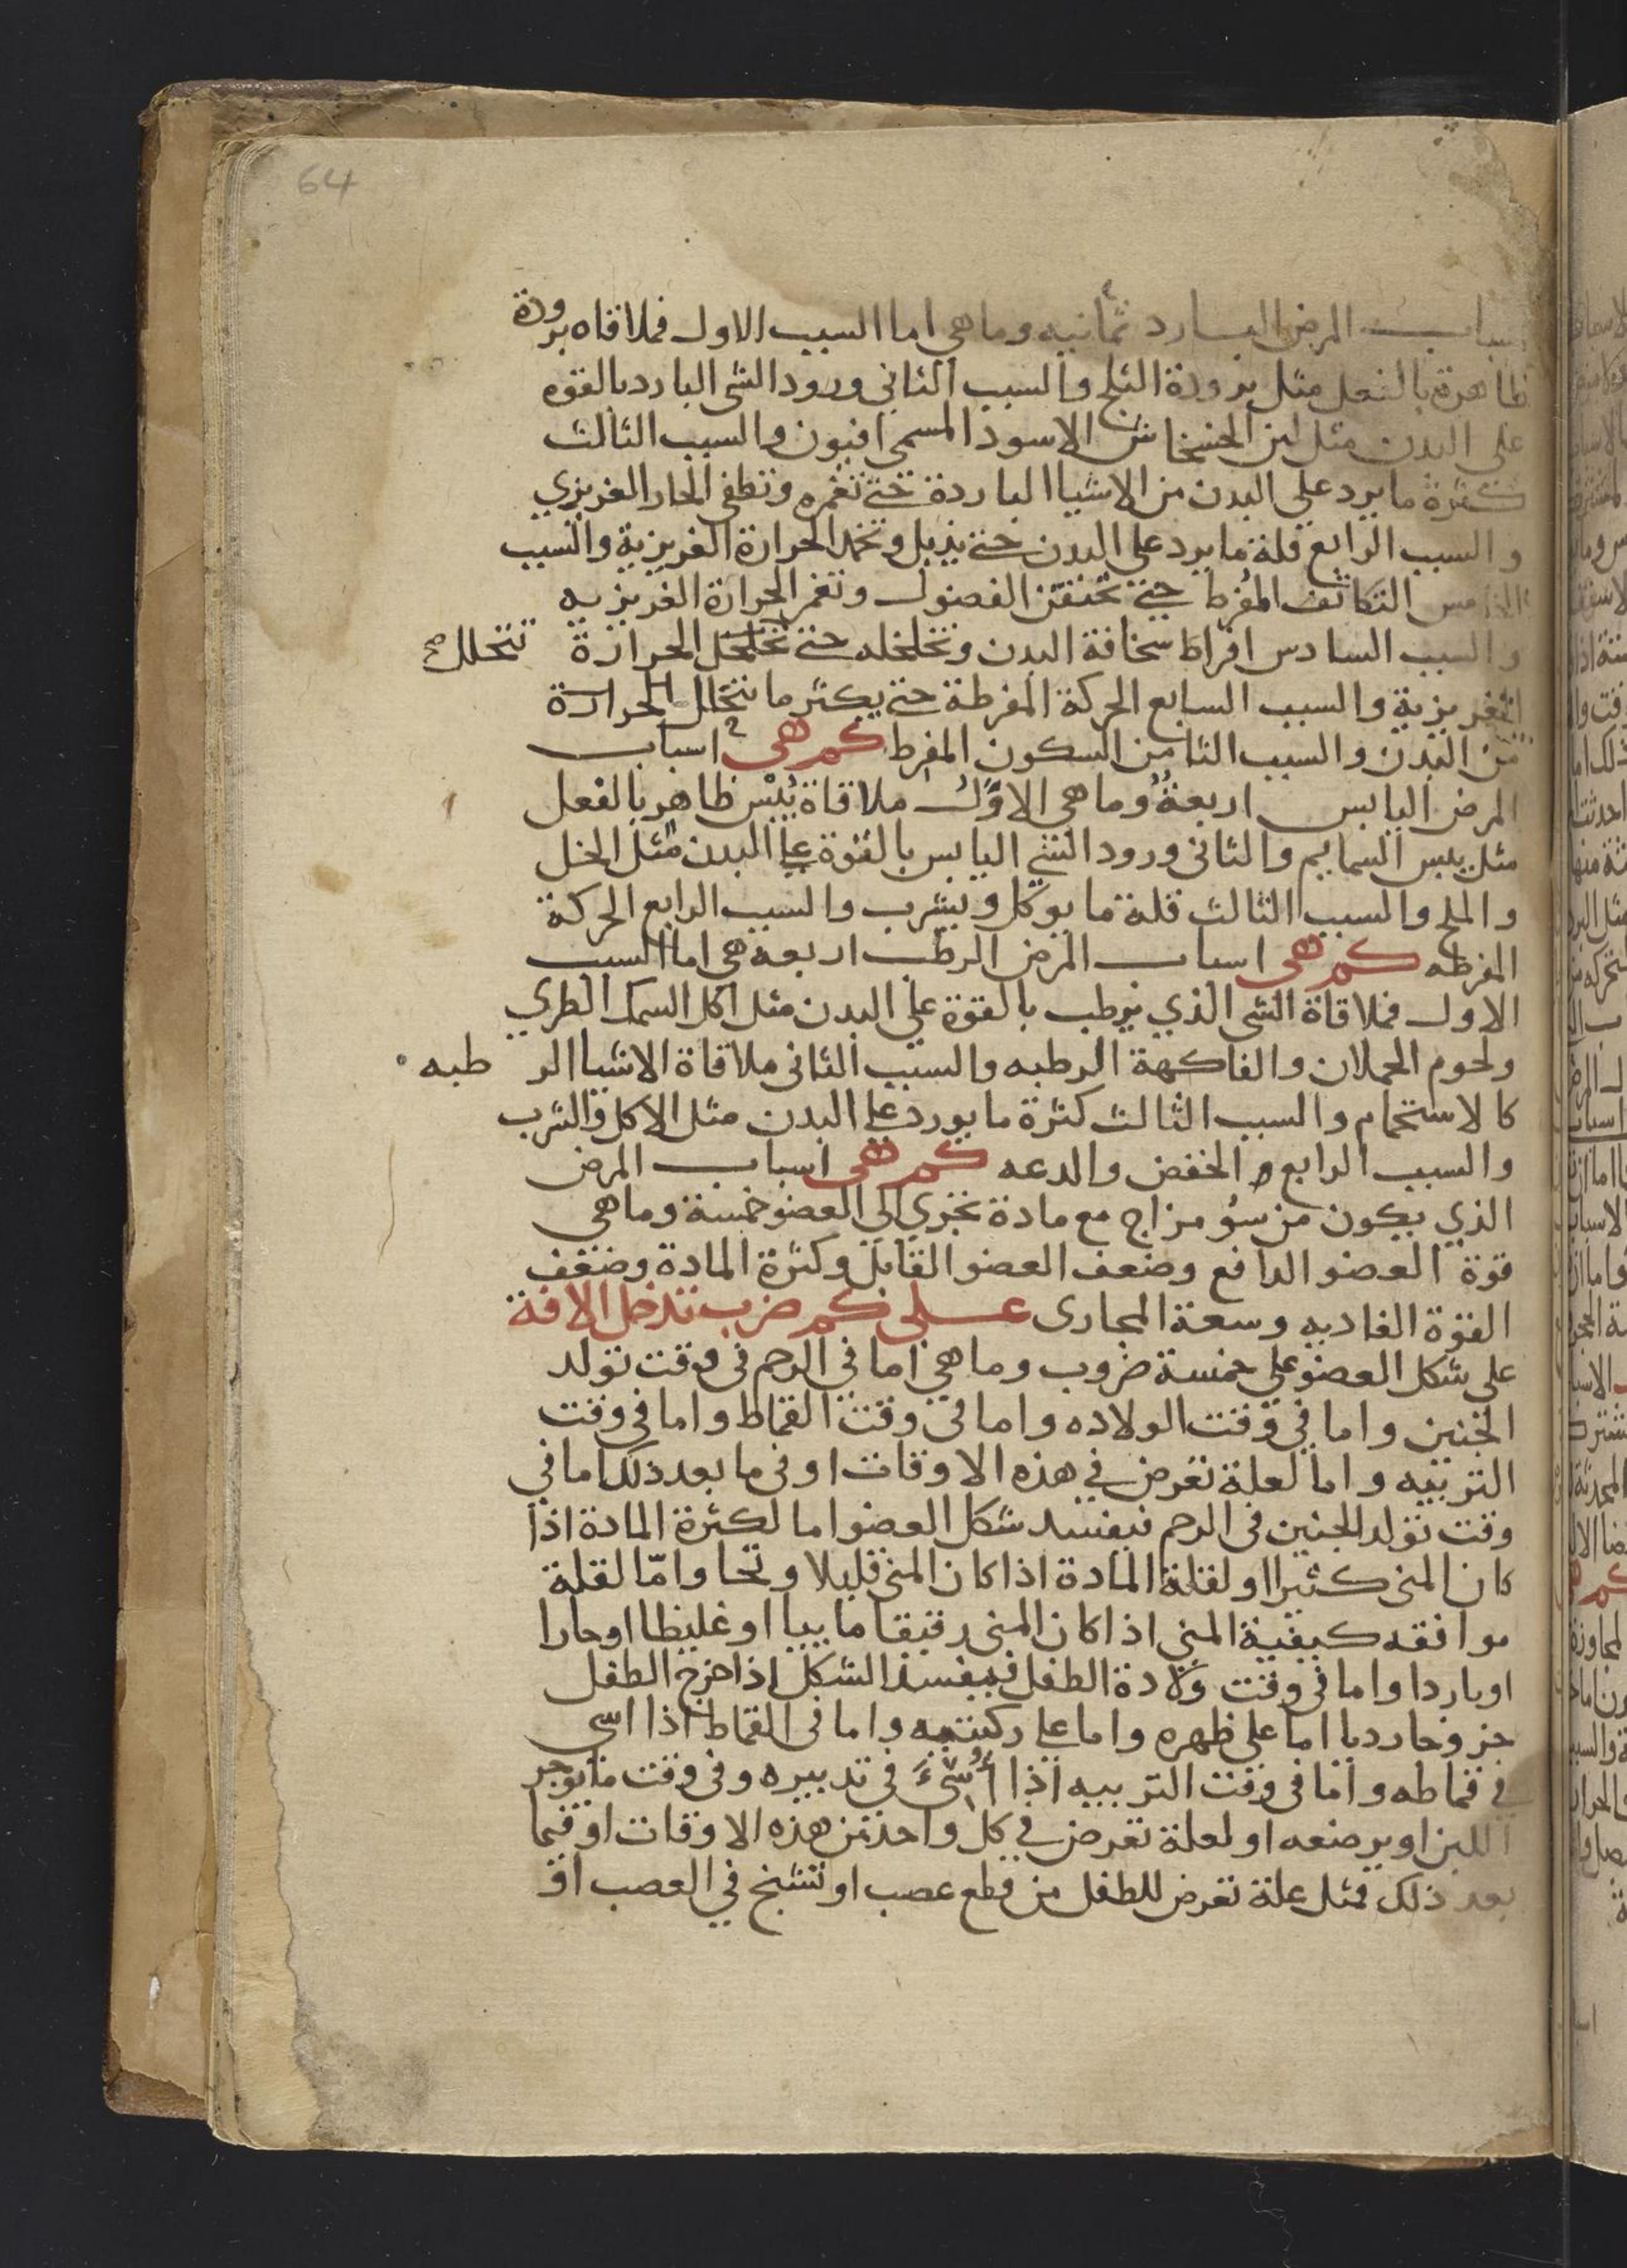 64
اسباب المرض البارد ثمانيه وما هي اما السبب الاول فملاقاه برودة
ظاهرة بالفعل مثل برودة الثلج والسبب الثاني ورود الشي البارد بالقوه
على البدن مثل لبن الخشخاش الاسود المسمى افيون والسبب الثالث
كثرة ما يرد على البدن من الاشيا الباردة حتى تغمره وتطفى الحار الغريزي
والسبب الرابع قلة ما يرد على البدن حتى يذبل وتخمد الحرارة الغريزية والسبب
الخامس التكاثف المفرط حتى تحتقن الفضول وتغمر الحرارة الغريزيه
والسبب السادس افراط سخافة البدن وتخلخله حتى تخلخل الحرارة تتحلل صح
الغريزية والسبب السابع الحركة المفرطة حتى يكثر ما يتحلل الحرارة
من البدن والسبب الثامن السكون المفرط كم هي اسباب
المرض اليابس اربعة وما هي الاوّل ملاقاة يُبْس ظاهر بالفعل
مثل يبس السمايم والثاني ورود الشي اليابس بالقوة على البدن مثل الخل
والملح والسبب الثالث قلة ما يوكل ويشرب والسبب الرابع الحركة
المفرطه كم هي اسباب المرض الرطب اربعه هي اما السبب
الاول فملاقاة الشى الذي يرطب بالقوة على البدن مثل اكل السمك الطري
ولحوم الحملان والفاكهة الرطبه والسبب الثاني ملاقاة الاشيا الر طبه
كالاستحمام والسبب الثالث كثرة ما يورد على البدن مثل الاكل والشرب
والسبب الرابع الخفض والدعه كم هي اسباب المرض
الذي يكون من سوُ مزاج مع مادة تجري الي العضو خمسة وما هي
قوة العضو الدافع وضعف العضو القابل وكثرة المادة وضعف
القوة الغاديه وسعة المجارى على كم ضرب تدخل الافة
على شكل العضو على خمسة ضروب وما هي اما في الرحم في وقت تولد
الجنين واما في وقت الولاده واما في وقت القماط واما في وقت
التربيه واما لعلة تعرض في هذه الاوقات او في ما بعد ذلك اما في
وقت تولد الجنين في الرحم فيفسد شكل العضو اما لكثرة المادة اذا
كان المني كثيرا او لقلة المادة اذا كان المني قليلا وتحا وامّا لقلة
موافقه كيفية المني اذا كان المني رقيقا ماييا او غليظا او حارا
او باردا واما في وقت ولادة الطفل فيفسد الشكل اذا خرج الطفل
خروجا رديا اما على ظهره واما على ركبتيه واما في القماط اذا اسى
في قماطه واما في وقت التربيه اذا أُسّئَ في تدبيره وفي وقت ما يوجر
اللبن او يرضعه او لعلة تعرض في كل واحد من هذه الاوقات او فيما
بعد ذلك فمثل علة تعرض للطفل من قطع عصب او تشنج في العصب او